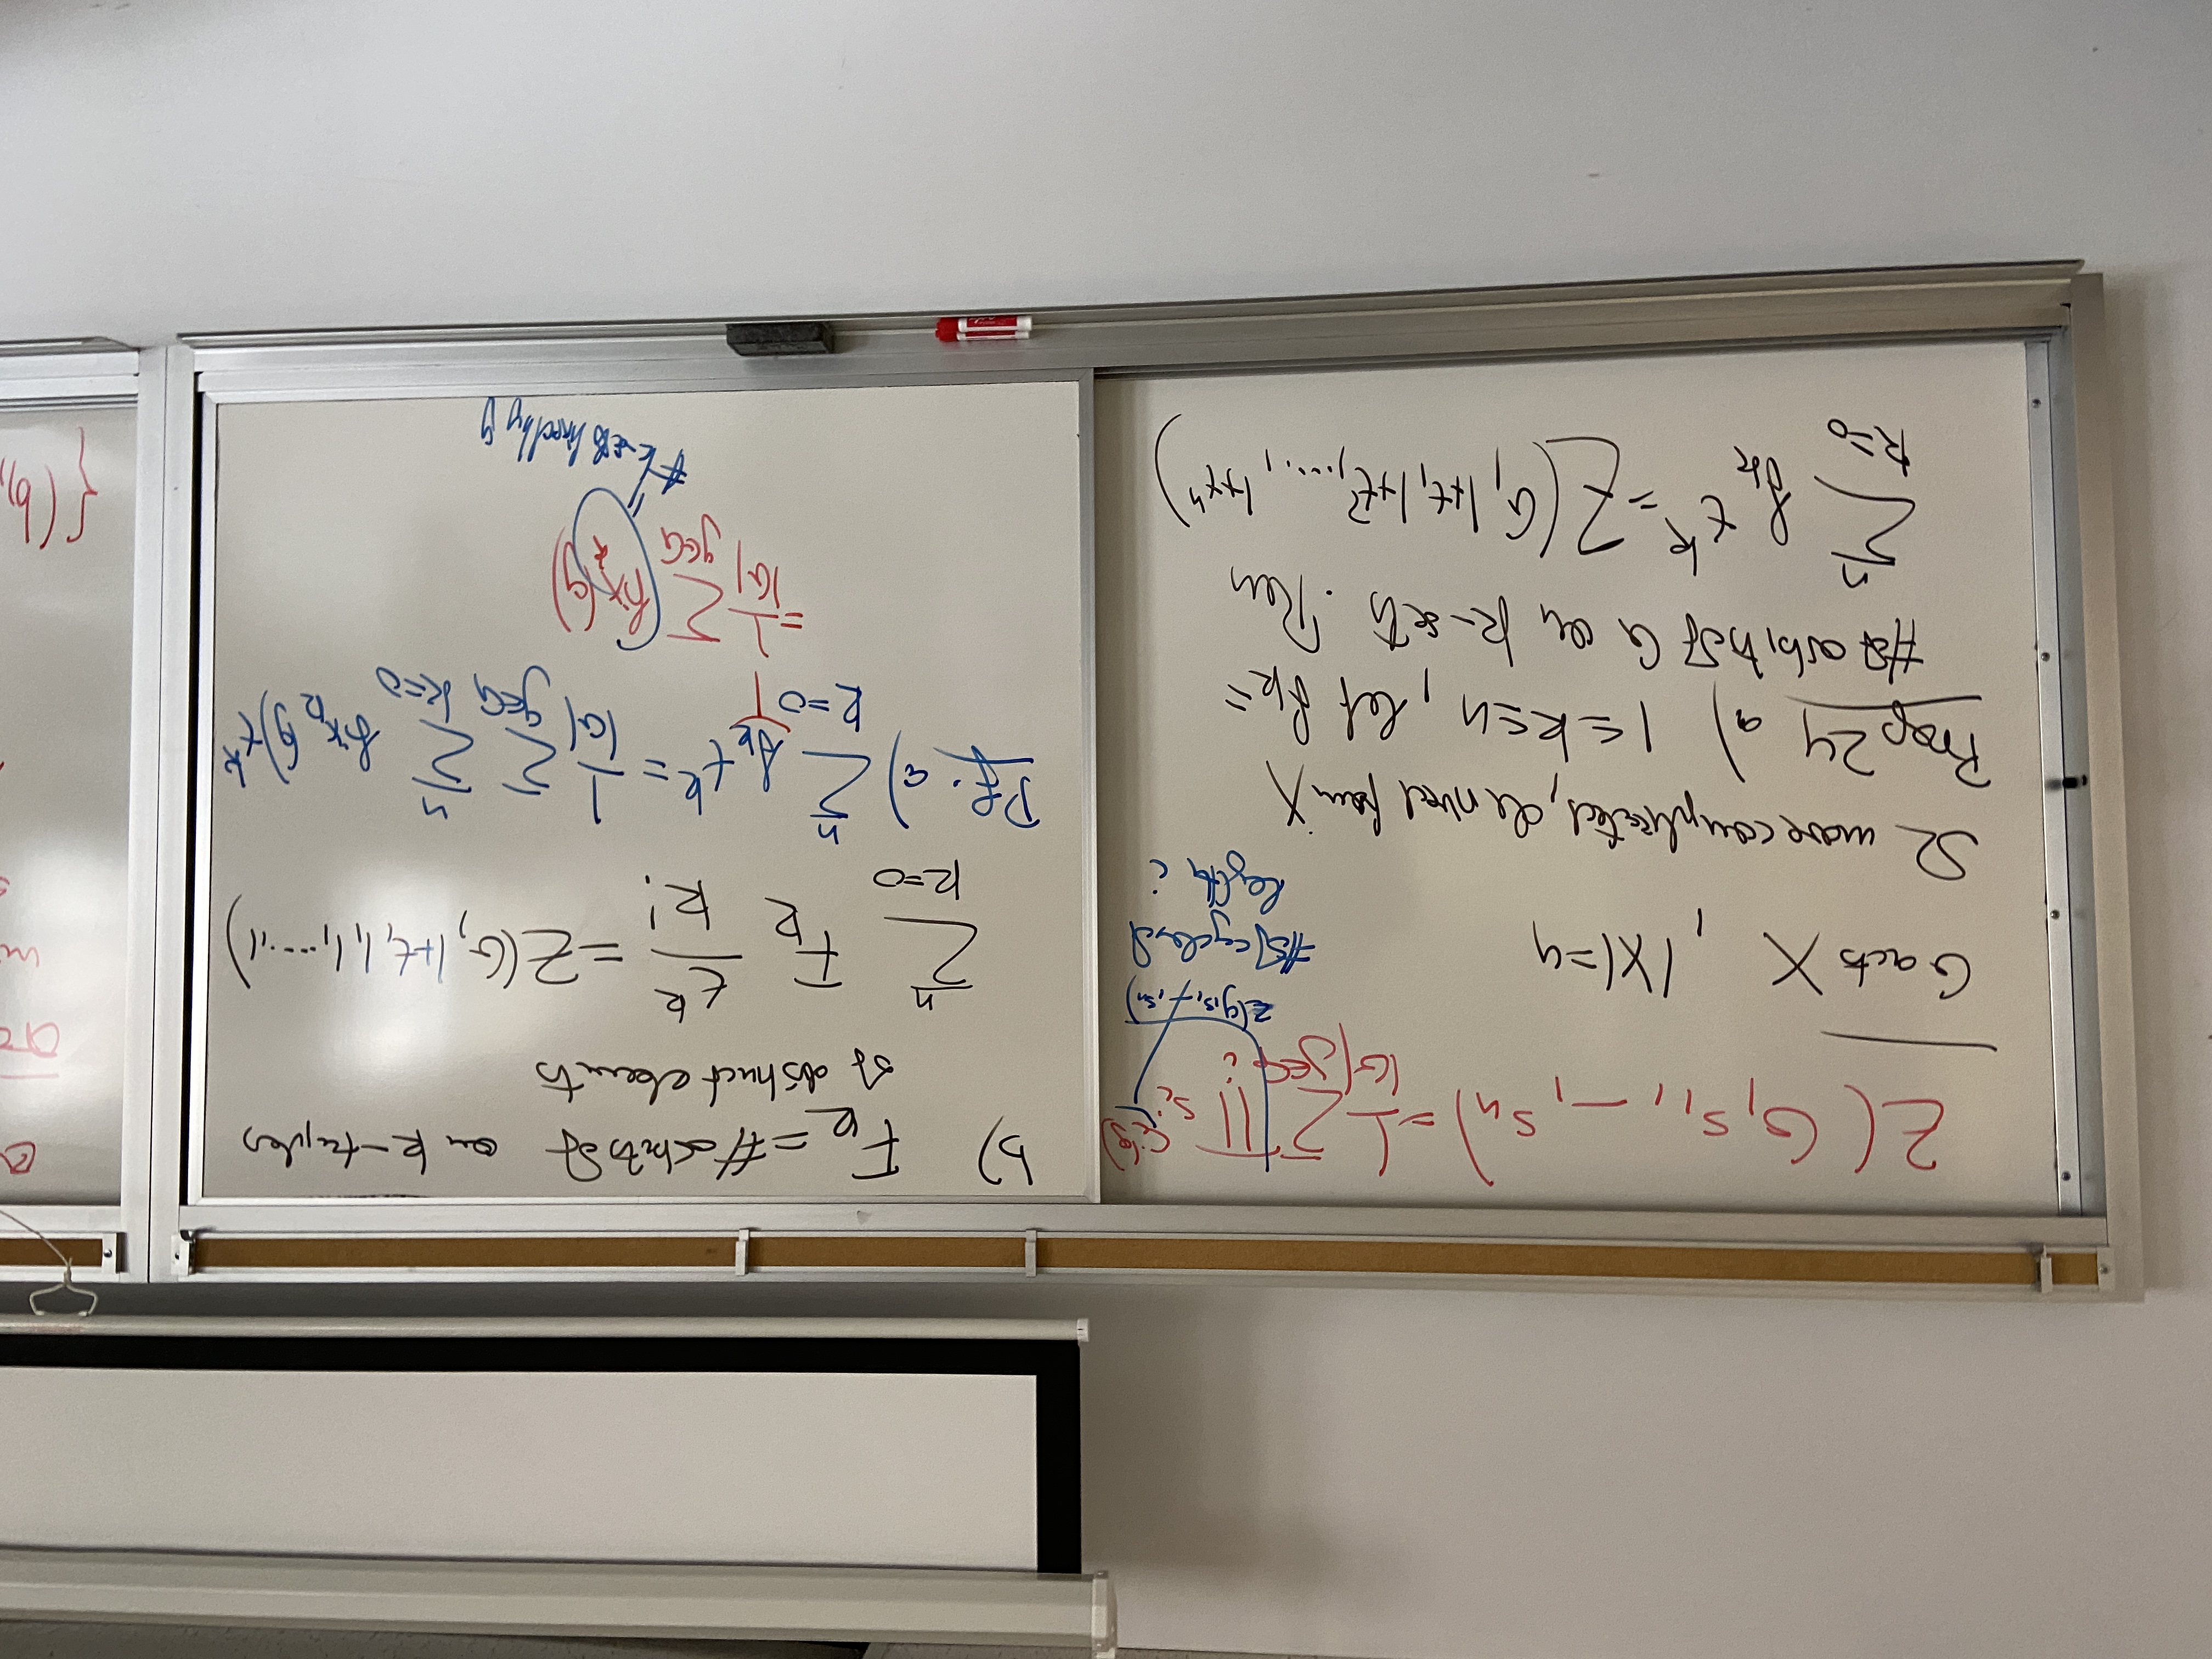 Z(G, s₁, –, sₙ) = 1/|G| Σ_{g∈G} Π_i s_i^{c_i(g)}
Z(g, s₁, –, sₙ)
# of cycles of
length i
G acts X , |X|=n
Ω more complicated, derived from X
Prop 24 a) 1≤k≤n, let f_k =
# of orbits of G on k-sets. Then
Σ_{k=0}^{n} f_k t^k = Z(G, 1+t, 1+t², ...., 1+tⁿ)
b) F_k = # orbits of on k-tuples
of distinct elements
Σ_{k=0}^{n} F_k t^k/k! = Z(G, 1+t, 1, 1, ....1)
Pf. a) Σ_{k=0}^{n} f_k t^k = 1/|G| Σ_{g∈G} Σ_{k=0}^{n} fix_k(g) t^k
= 1/|G| Σ_{g∈G} fix_k(g)
# k-sets fixed by g
{(b),